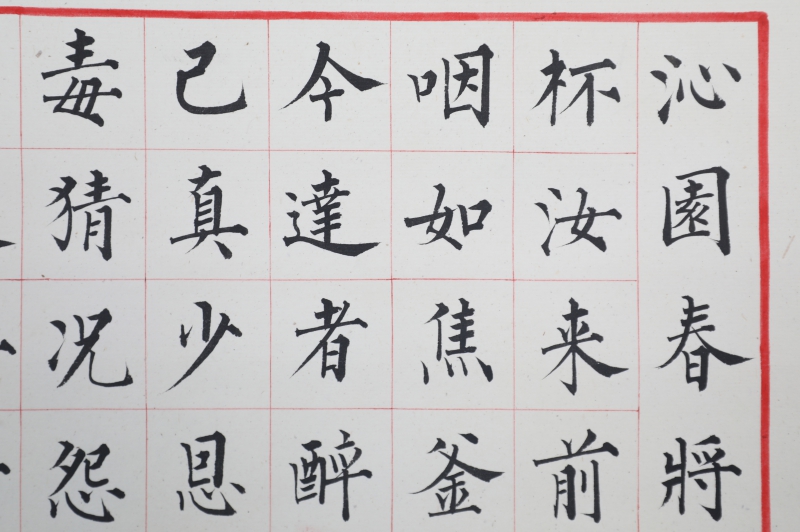 沁園春將
杯汝来前
咽如焦釜
今達者醉
己真少恩
毒猜况怨